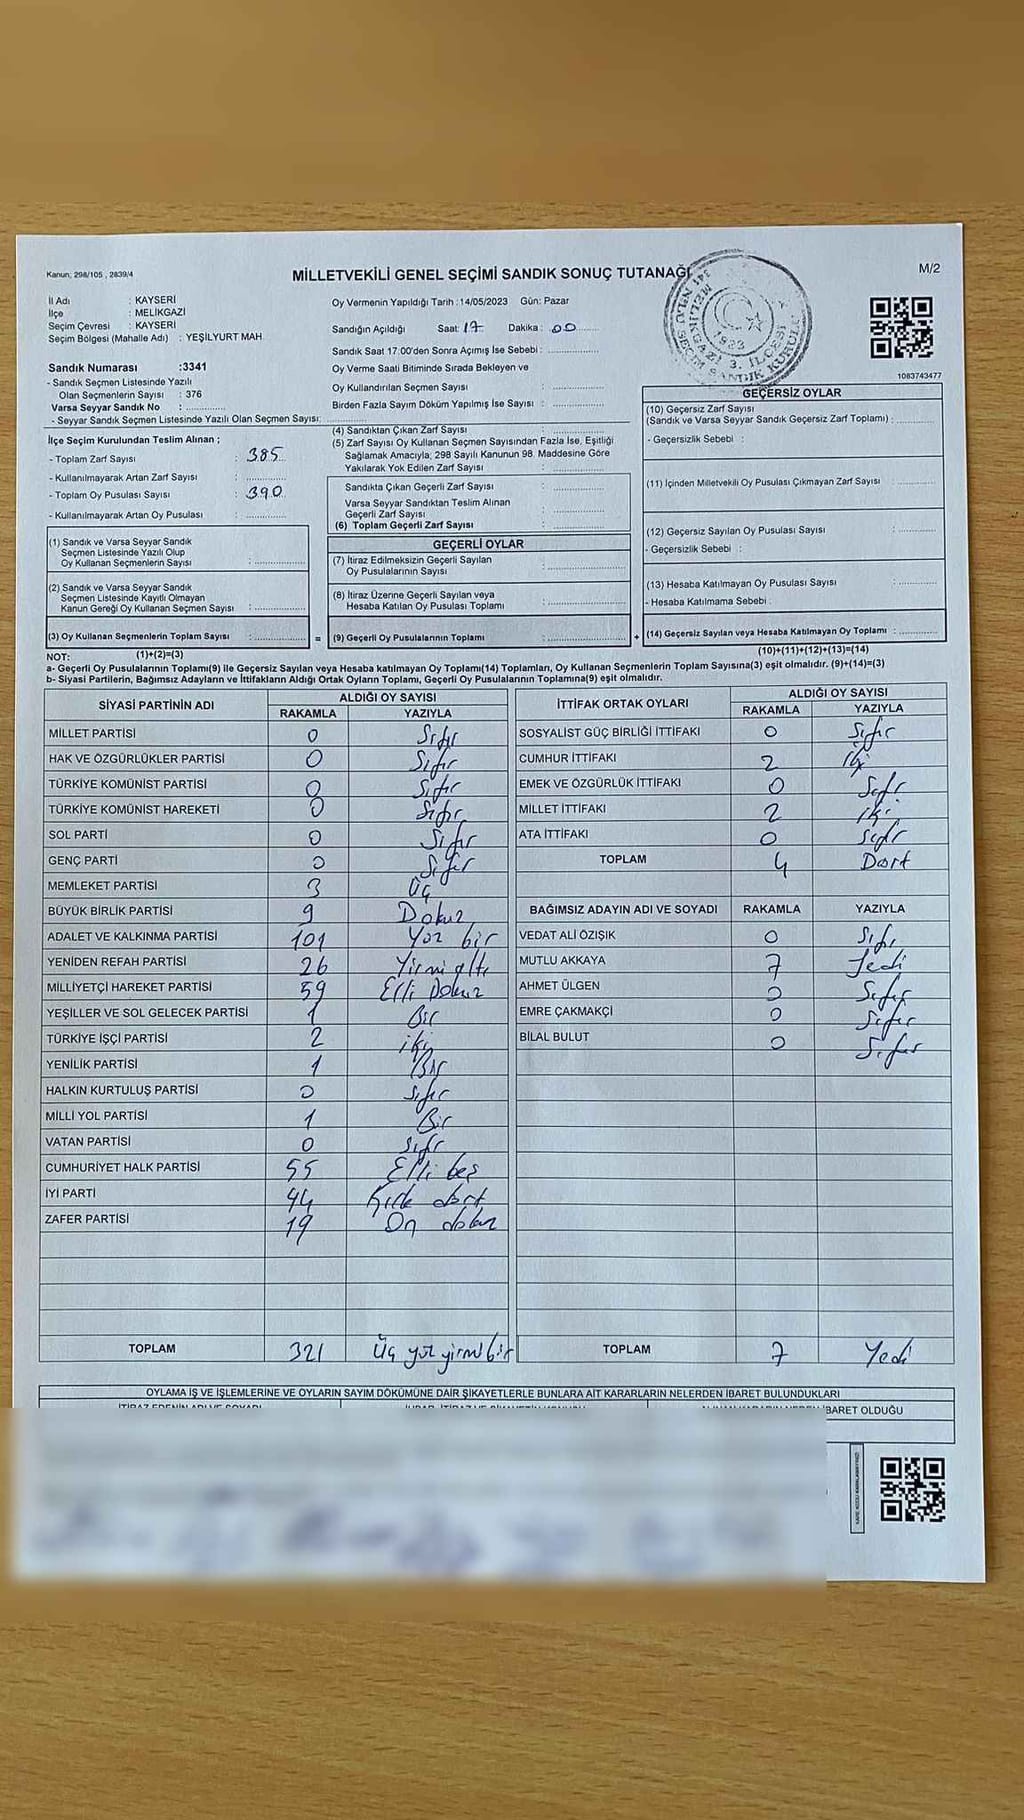 Kanun; 298/105 , 2839/4
MİLLETVEKİLİ GENEL SEÇİMİ SANDIK SONUÇ TUTANAĞI
M/2
İl Adı : KAYSERİ
İlçe : MELİKGAZİ
Seçim Çevresi : KAYSERİ
Seçim Bölgesi (Mahalle Adı) : YEŞİLYURT MAH
Oy Vermenin Yapıldığı Tarih :14/05/2023 Gün: Pazar
Sandığın Açıldığı Saat: 17 Dakika : 00
Sandık Saat 17:00'den Sonra Açımış İse Sebebi :
Oy Verme Saati Bitiminde Sırada Bekleyen ve
Oy Kullandırılan Seçmen Sayısı :
Birden Fazla Sayım Döküm Yapılmış İse Sayısı :
1083743477
Sandık Numarası :3341
- Sandık Seçmen Listesinde Yazılı
Olan Seçmenlerin Sayısı : 376
Varsa Seyyar Sandık No :
- Seyyar Sandık Seçmen Listesinde Yazılı Olan Seçmen Sayısı:
İlçe Seçim Kurulundan Teslim Alınan ;
- Toplam Zarf Sayısı : 385
- Kullanılmayarak Artan Zarf Sayısı :
- Toplam Oy Pusulası Sayısı : 390
- Kullanılmayarak Artan Oy Pusulası :
(1) Sandık ve Varsa Seyyar Sandık
Seçmen Listesinde Yazılı Olup
Oy Kullanan Seçmenlerin Sayısı :
(2) Sandık ve Varsa Seyyar Sandık
Seçmen Listesinde Kayıtlı Olmayan
Kanun Gereği Oy Kullanan Seçmen Sayısı :
(3) Oy Kullanan Seçmenlerin Toplam Sayısı : =
(1)+(2)=(3)
(4) Sandıktan Çıkan Zarf Sayısı :
(5) Zarf Sayısı Oy Kullanan Seçmen Sayısından Fazla İse, Eşitliği
Sağlamak Amacıyla; 298 Sayılı Kanunun 98. Maddesine Göre
Yakılarak Yok Edilen Zarf Sayısı :
Sandıkta Çıkan Geçerli Zarf Sayısı :
Varsa Seyyar Sandıktan Teslim Alınan
Geçerli Zarf Sayısı :
(6) Toplam Geçerli Zarf Sayısı :
GEÇERLİ OYLAR
(7) İtiraz Edilmeksizin Geçerli Sayılan
Oy Pusulalarının Sayısı :
(8) İtiraz Üzerine Geçerli Sayılan veya
Hesaba Katılan Oy Pusulası Toplamı :
(9) Geçerli Oy Pusulalarının Toplamı : +
GEÇERSİZ OYLAR
(10) Geçersiz Zarf Sayısı
(Sandık ve Varsa Seyyar Sandık Geçersiz Zarf Toplamı) :
- Geçersizlik Sebebi :
(11) İçinden Milletvekili Oy Pusulası Çıkmayan Zarf Sayısı :
(12) Geçersiz Sayılan Oy Pusulası Sayısı :
- Geçersizlik Sebebi :
(13) Hesaba Katılmayan Oy Pusulası Sayısı :
- Hesaba Katılmama Sebebi :
(14) Geçersiz Sayılan veya Hesaba Katılmayan Oy Toplamı :
(10)+(11)+(12)+(13)=(14)
NOT:
a- Geçerli Oy Pusulalarının Toplamı(9) ile Geçersiz Sayılan veya Hesaba katılmayan Oy Toplamı(14) Toplamları, Oy Kullanan Seçmenlerin Toplam Sayısına(3) eşit olmalıdır. (9)+(14)=(3)
b- Siyasi Partilerin, Bağımsız Adayların ve İttifakların Aldığı Ortak Oyların Toplamı, Geçerli Oy Pusulalarının Toplamına(9) eşit olmalıdır.
SİYASİ PARTİNİN ADI ALDIĞI OY SAYISI
RAKAMLA YAZIYLA
MİLLET PARTİSİ 0 Sıfır
HAK VE ÖZGÜRLÜKLER PARTİSİ 0 Sıfır
TÜRKİYE KOMÜNİST PARTİSİ 0 Sıfır
TÜRKİYE KOMÜNİST HAREKETİ 0 Sıfır
SOL PARTİ 0 Sıfır
GENÇ PARTİ 0 Sıfır
MEMLEKET PARTİSİ 3 Üç
BÜYÜK BİRLİK PARTİSİ 9 Dokuz
ADALET VE KALKINMA PARTİSİ 101 Yüz bir
YENİDEN REFAH PARTİSİ 26 Yirmi altı
MİLLİYETÇİ HAREKET PARTİSİ 59 Elli Dokuz
YEŞİLLER VE SOL GELECEK PARTİSİ 1 Bir
TÜRKİYE İŞÇİ PARTİSİ 2 iki
YENİLİK PARTİSİ 1 Bir
HALKIN KURTULUŞ PARTİSİ 0 sıfır
MİLLİ YOL PARTİSİ 1 Bir
VATAN PARTİSİ 0 sıfır
CUMHURİYET HALK PARTİSİ 55 Elli beş
İYİ PARTİ 44 Kırk dört
ZAFER PARTİSİ 19 On dokuz
TOPLAM 321 Üç yüz yirmi bir
İTTİFAK ORTAK OYLARI ALDIĞI OY SAYISI
RAKAMLA YAZIYLA
SOSYALİST GÜÇ BİRLİĞİ İTTİFAKI 0 Sıfır
CUMHUR İTTİFAKI 2 iki
EMEK VE ÖZGÜRLÜK İTTİFAKI 0 Sıfır
MİLLET İTTİFAKI 2 iki
ATA İTTİFAKI 0 sıfır
TOPLAM 4 Dört
BAĞIMSIZ ADAYIN ADI VE SOYADI RAKAMLA YAZIYLA
VEDAT ALİ ÖZIŞIK 0 Sıfır
MUTLU AKKAYA 7 Yedi
AHMET ÜLGEN 0 Sıfır
EMRE ÇAKMAKÇİ 0 Sıfır
BİLAL BULUT 0 Sıfır
TOPLAM 7 Yedi
OYLAMA İŞ VE İŞLEMLERİNE VE OYLARIN SAYIM DÖKÜMÜNE DAİR ŞİKAYETLERLE BUNLARA AİT KARARLARIN NELERDEN İBARET BULUNDUKLARI
İBARET OLDUĞU